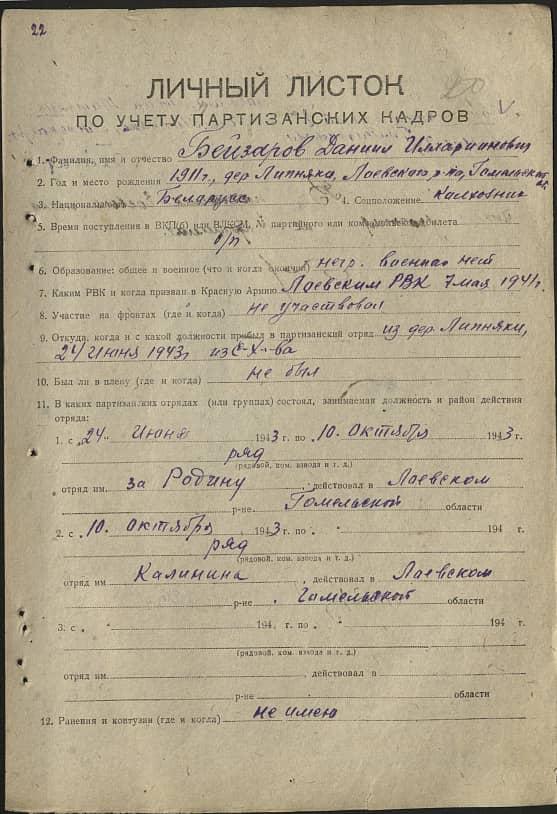 22
ЛИЧНЫЙ ЛИСТОК
ПО УЧЕТУ ПАРТИЗАНСКИХ КАДРОВ
1. Фамилия, имя и отчество Бейзаров Даниил Илларианович
2. Год и место рождения 1911 г., дер Липняки, Лоевского р-на, Гомельской
3. Национальн Беларусс 4. Соцположение Калхозник
5. Время поступления в ВКП(б) или ВЛКСМ, № партийного или комс билета
б/п
6. Образование: общее и военное (что и когда окончил) негр. военная нет
7. Каким РВК и когда призван в Красную Армию Лоевским РВК 7 мая 1941 г.
8. Участие на фронтах (где и когда) не участвовал
9. Откуда, когда и с какой должности прибыл в партизанский отряд из дер. Липняки,
24 Июня 1943 г из С-Х-ва
10. Был ли в плену (где и когда) не был
11. В каких партизанских отрядах (или группах) состоял, занимаемая должность и район действия
отряда:
1. с „24" Июня 1943 г. по „10" Октября 1943 г.
ряд
(рядовой, ком. взвода и т. д.)
отряд им. за Родину, действовал в Лаевском
р-не Гомельской области
2. с „10" Октября 1943 г. по „ " 194 г.
ряд
(рядовой, ком. взвода и т. д.)
отряд им Калинина, действовал в Лаевском
р-не Гомельской области
3. с „ " 194 г. по „ " 194 г.
(рядовой, ком. взвода и т. д.)
отряд им. , действовал в
р-не области
12. Ранения и контузии (где и когда) не имею